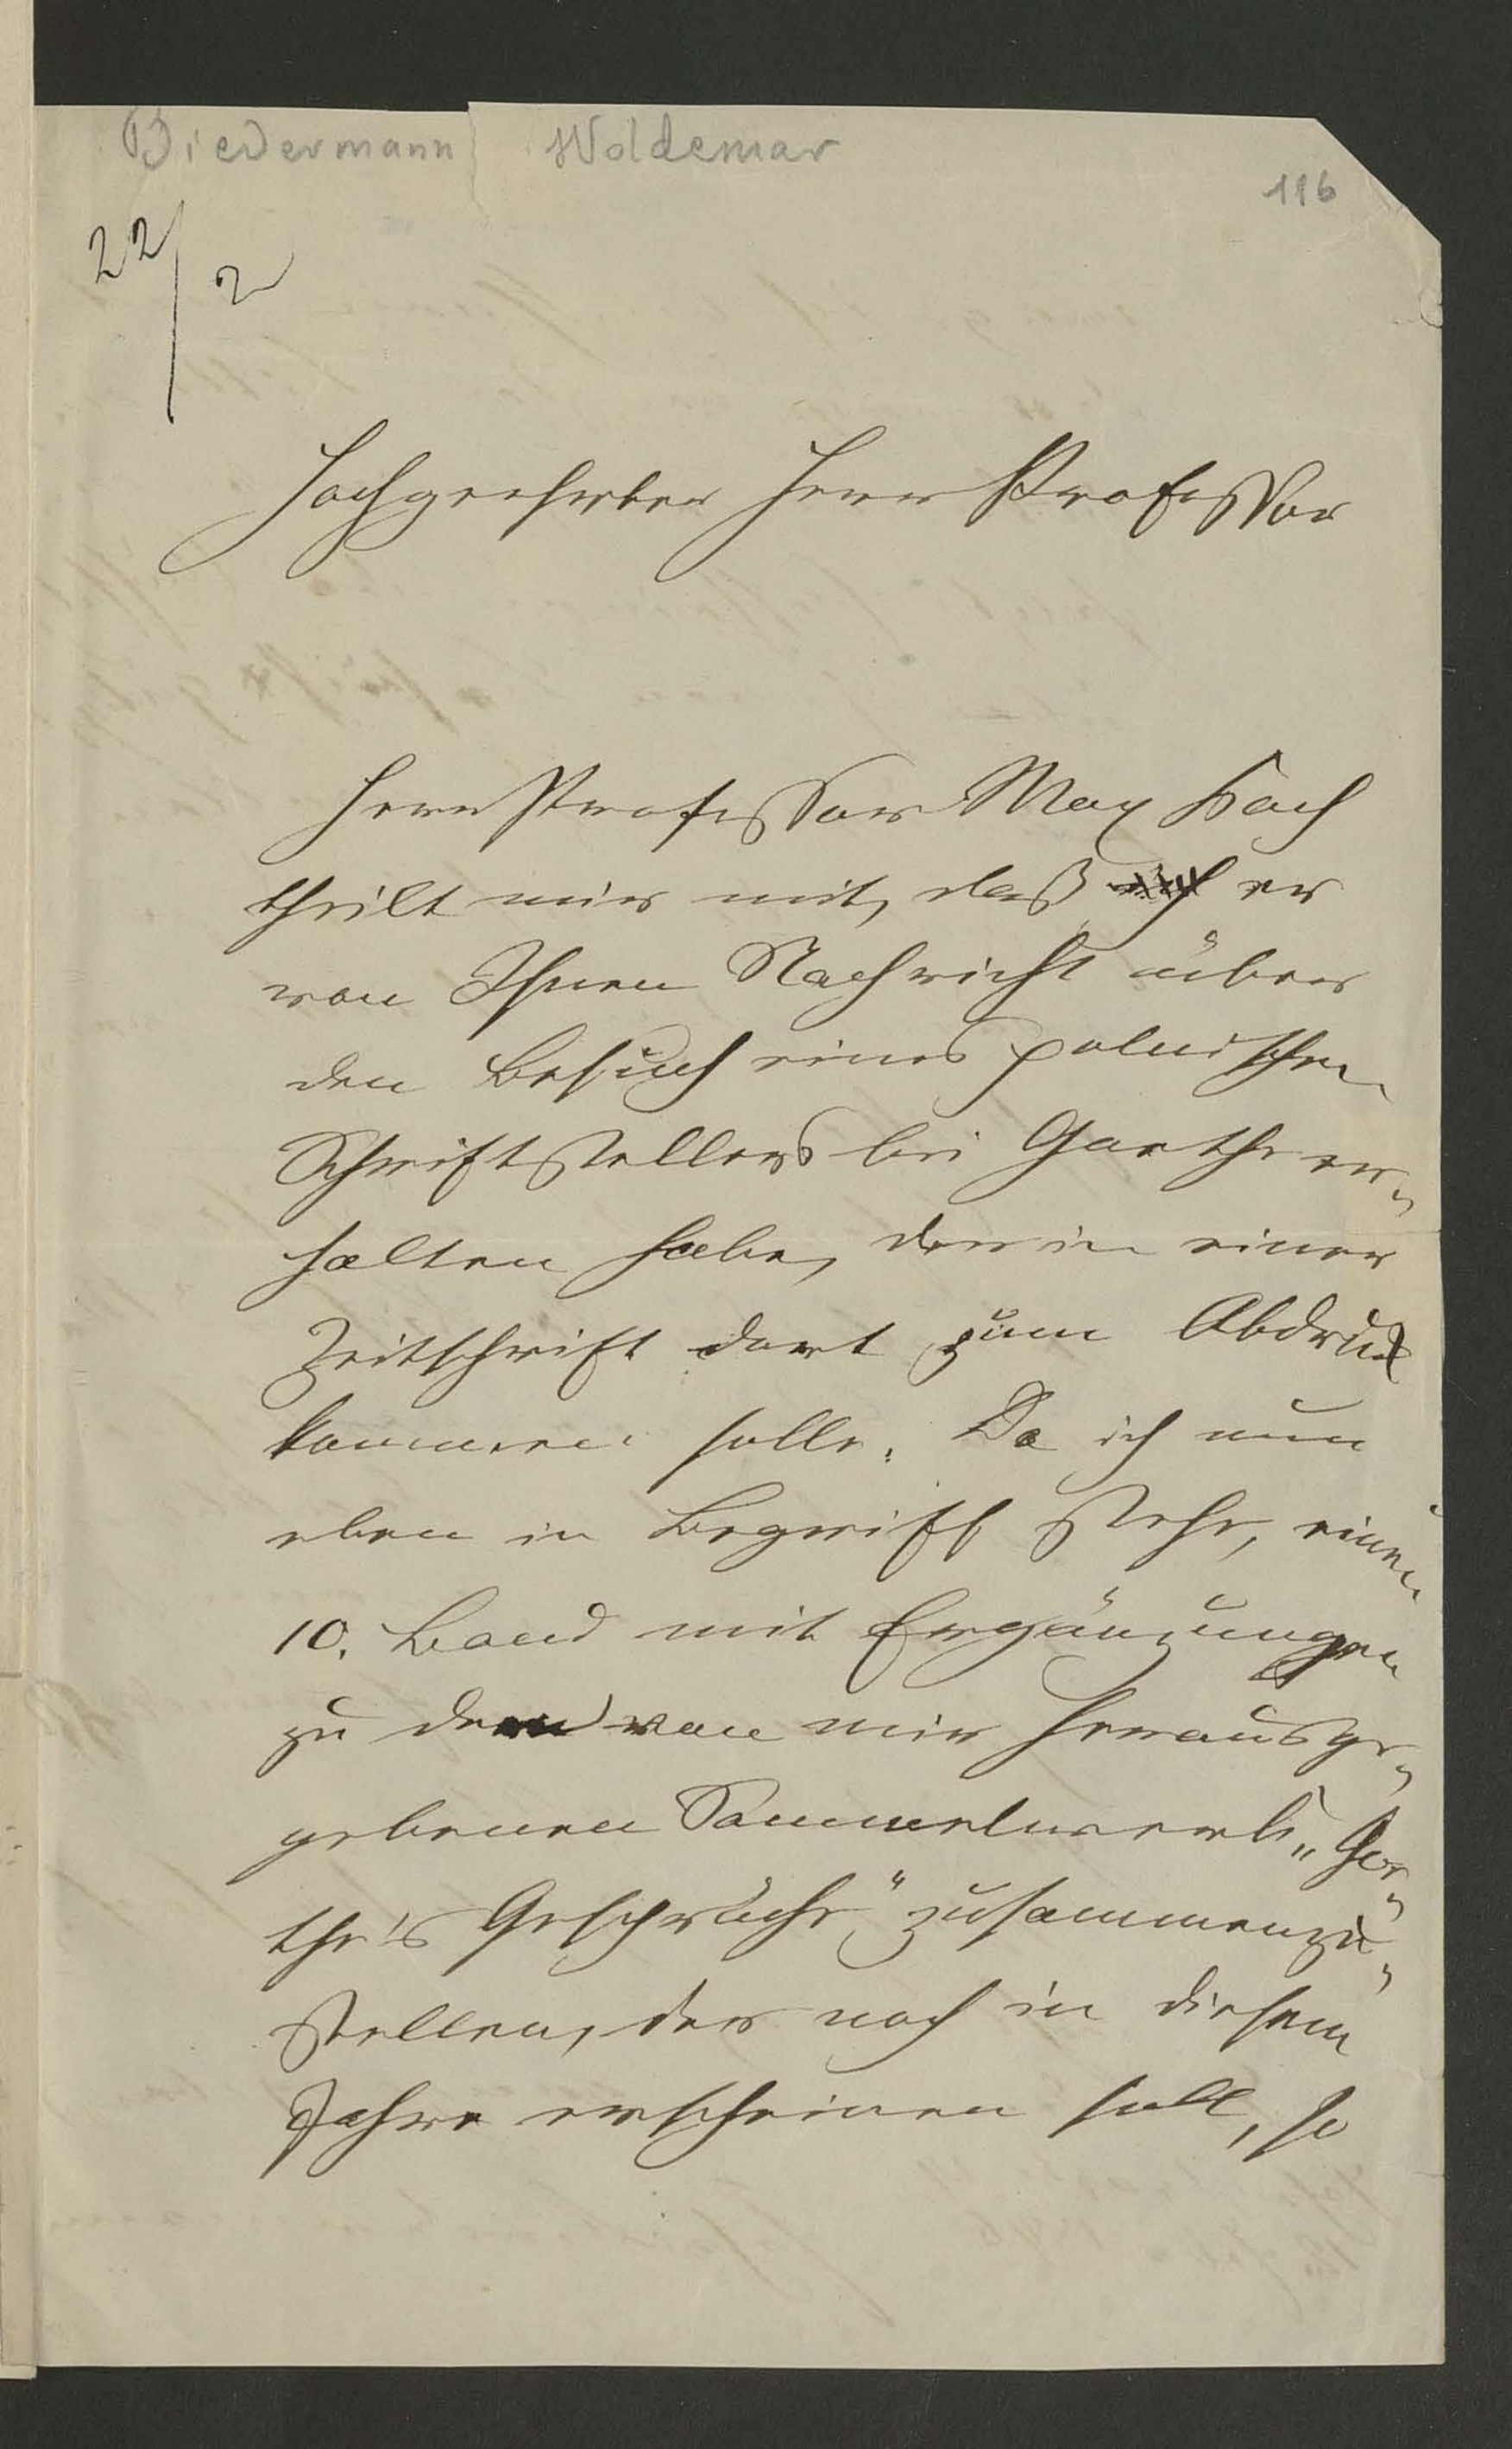 Biedermann Woldemar
116
22/2
Hochgeehrter Herr Professor
Herr Professor Max Koch
theilt mir mit, daß er
von Ihnen Nachricht über
den Besuch eines polnischen
Schriftstellers bei Goethe er„
halten habe, der in einer
Zeitschrift dort zum Abdruck
kommen solle. Da ich nun
eben in Begriff stehe, einen
10. Band mit Ergänzungen
zu dem von mir herausge„
gebenen Sammelwerk „Goe„
the's Gespräche“ zusammenzu„
stellen, der noch in diesem
Jahre erscheinen soll, so